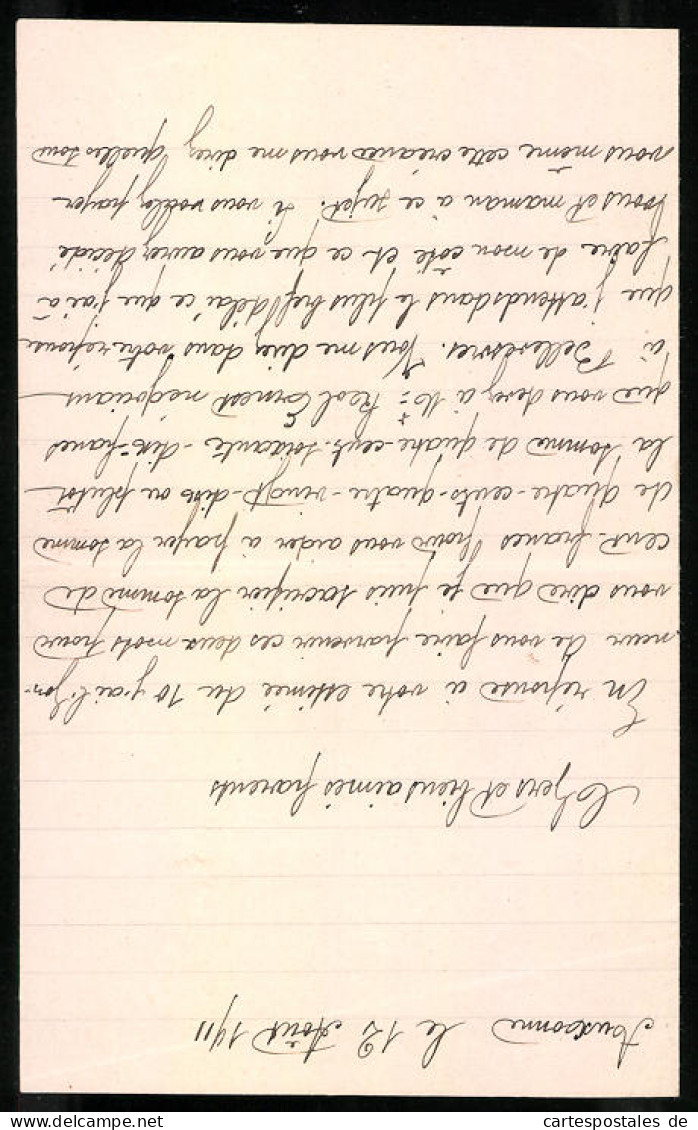 Auxonne le 12 Août 1911
Chers et bien aimés parents
En réponse à votre estimée du 10 j'ai l'hon-
neur de vous faire parvenir ces deux mots pour
vous dire que je puis sacrifier la somme de
cent francs pour vous aider à payer la somme
de quatre-cents-quatre-vingt-dix ou plutot
la somme de quatre-cent-soixante-dix-francs
que vous devez à Ernest négociant
à Bellevesvre. Vous me direz dans votre réponse
que j'attends dans le plus bref délai ce que j'ai à
faire de mon coté et ce que vous aurez décidé
vous et maman à ce sujet. Si vous voulez payer
vous même cette créance vous me direz quelles sont
www.cartespostales.de
cartespostales de